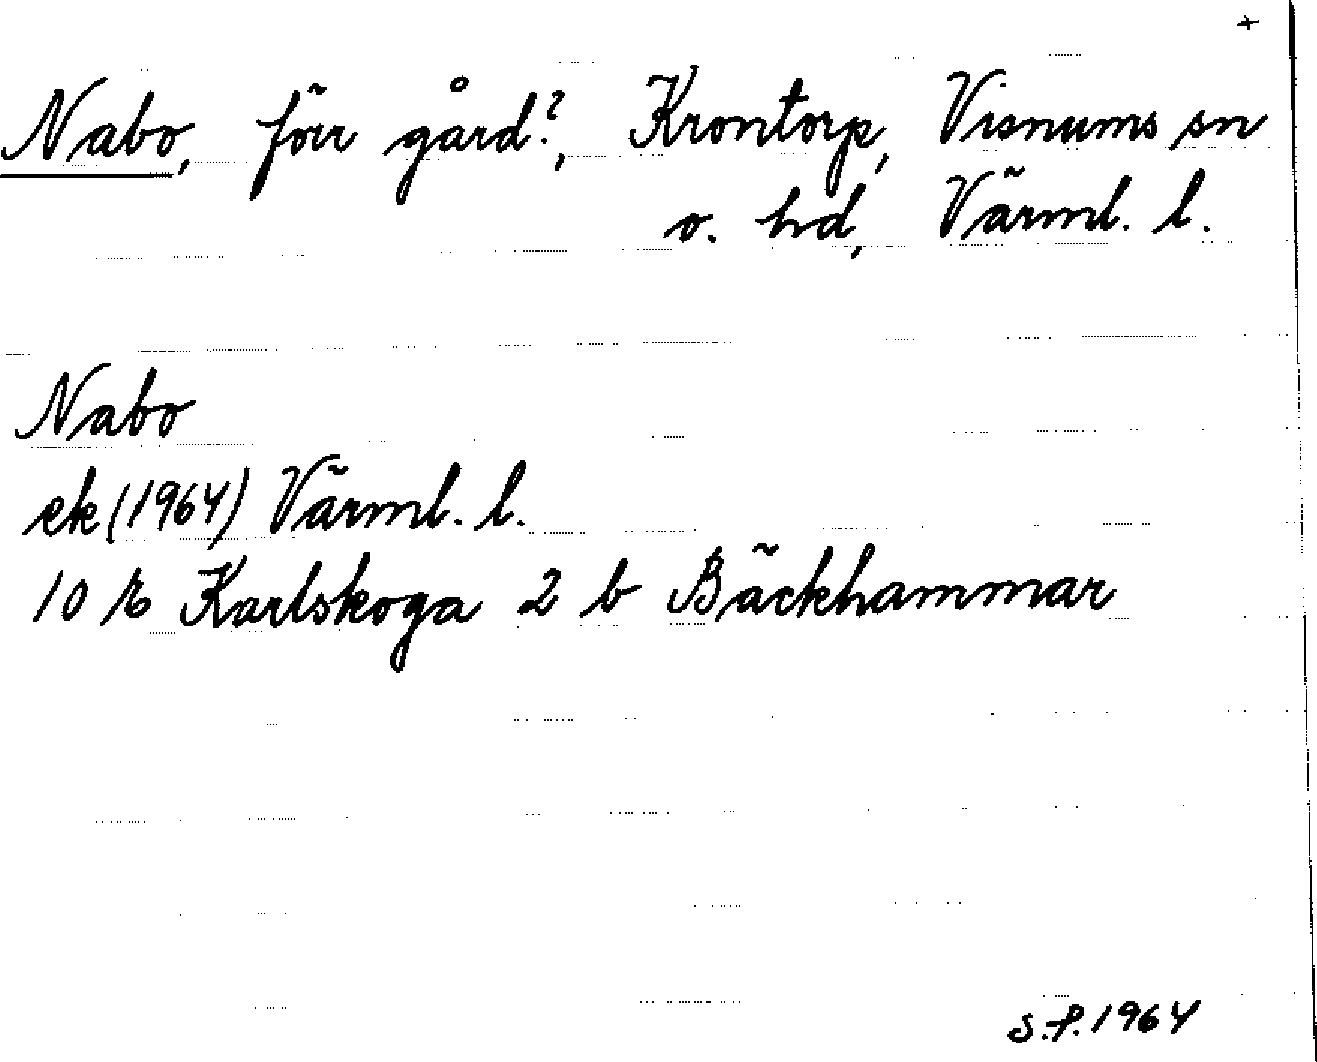 +
Nabo, förr gård?, Krontorp, Visnums sn
o. hd, Värml. l.
Nabo
ek (1964) Värml. l.
10 E Karlskoga 2 b Bäckhammar
S.F. 1964